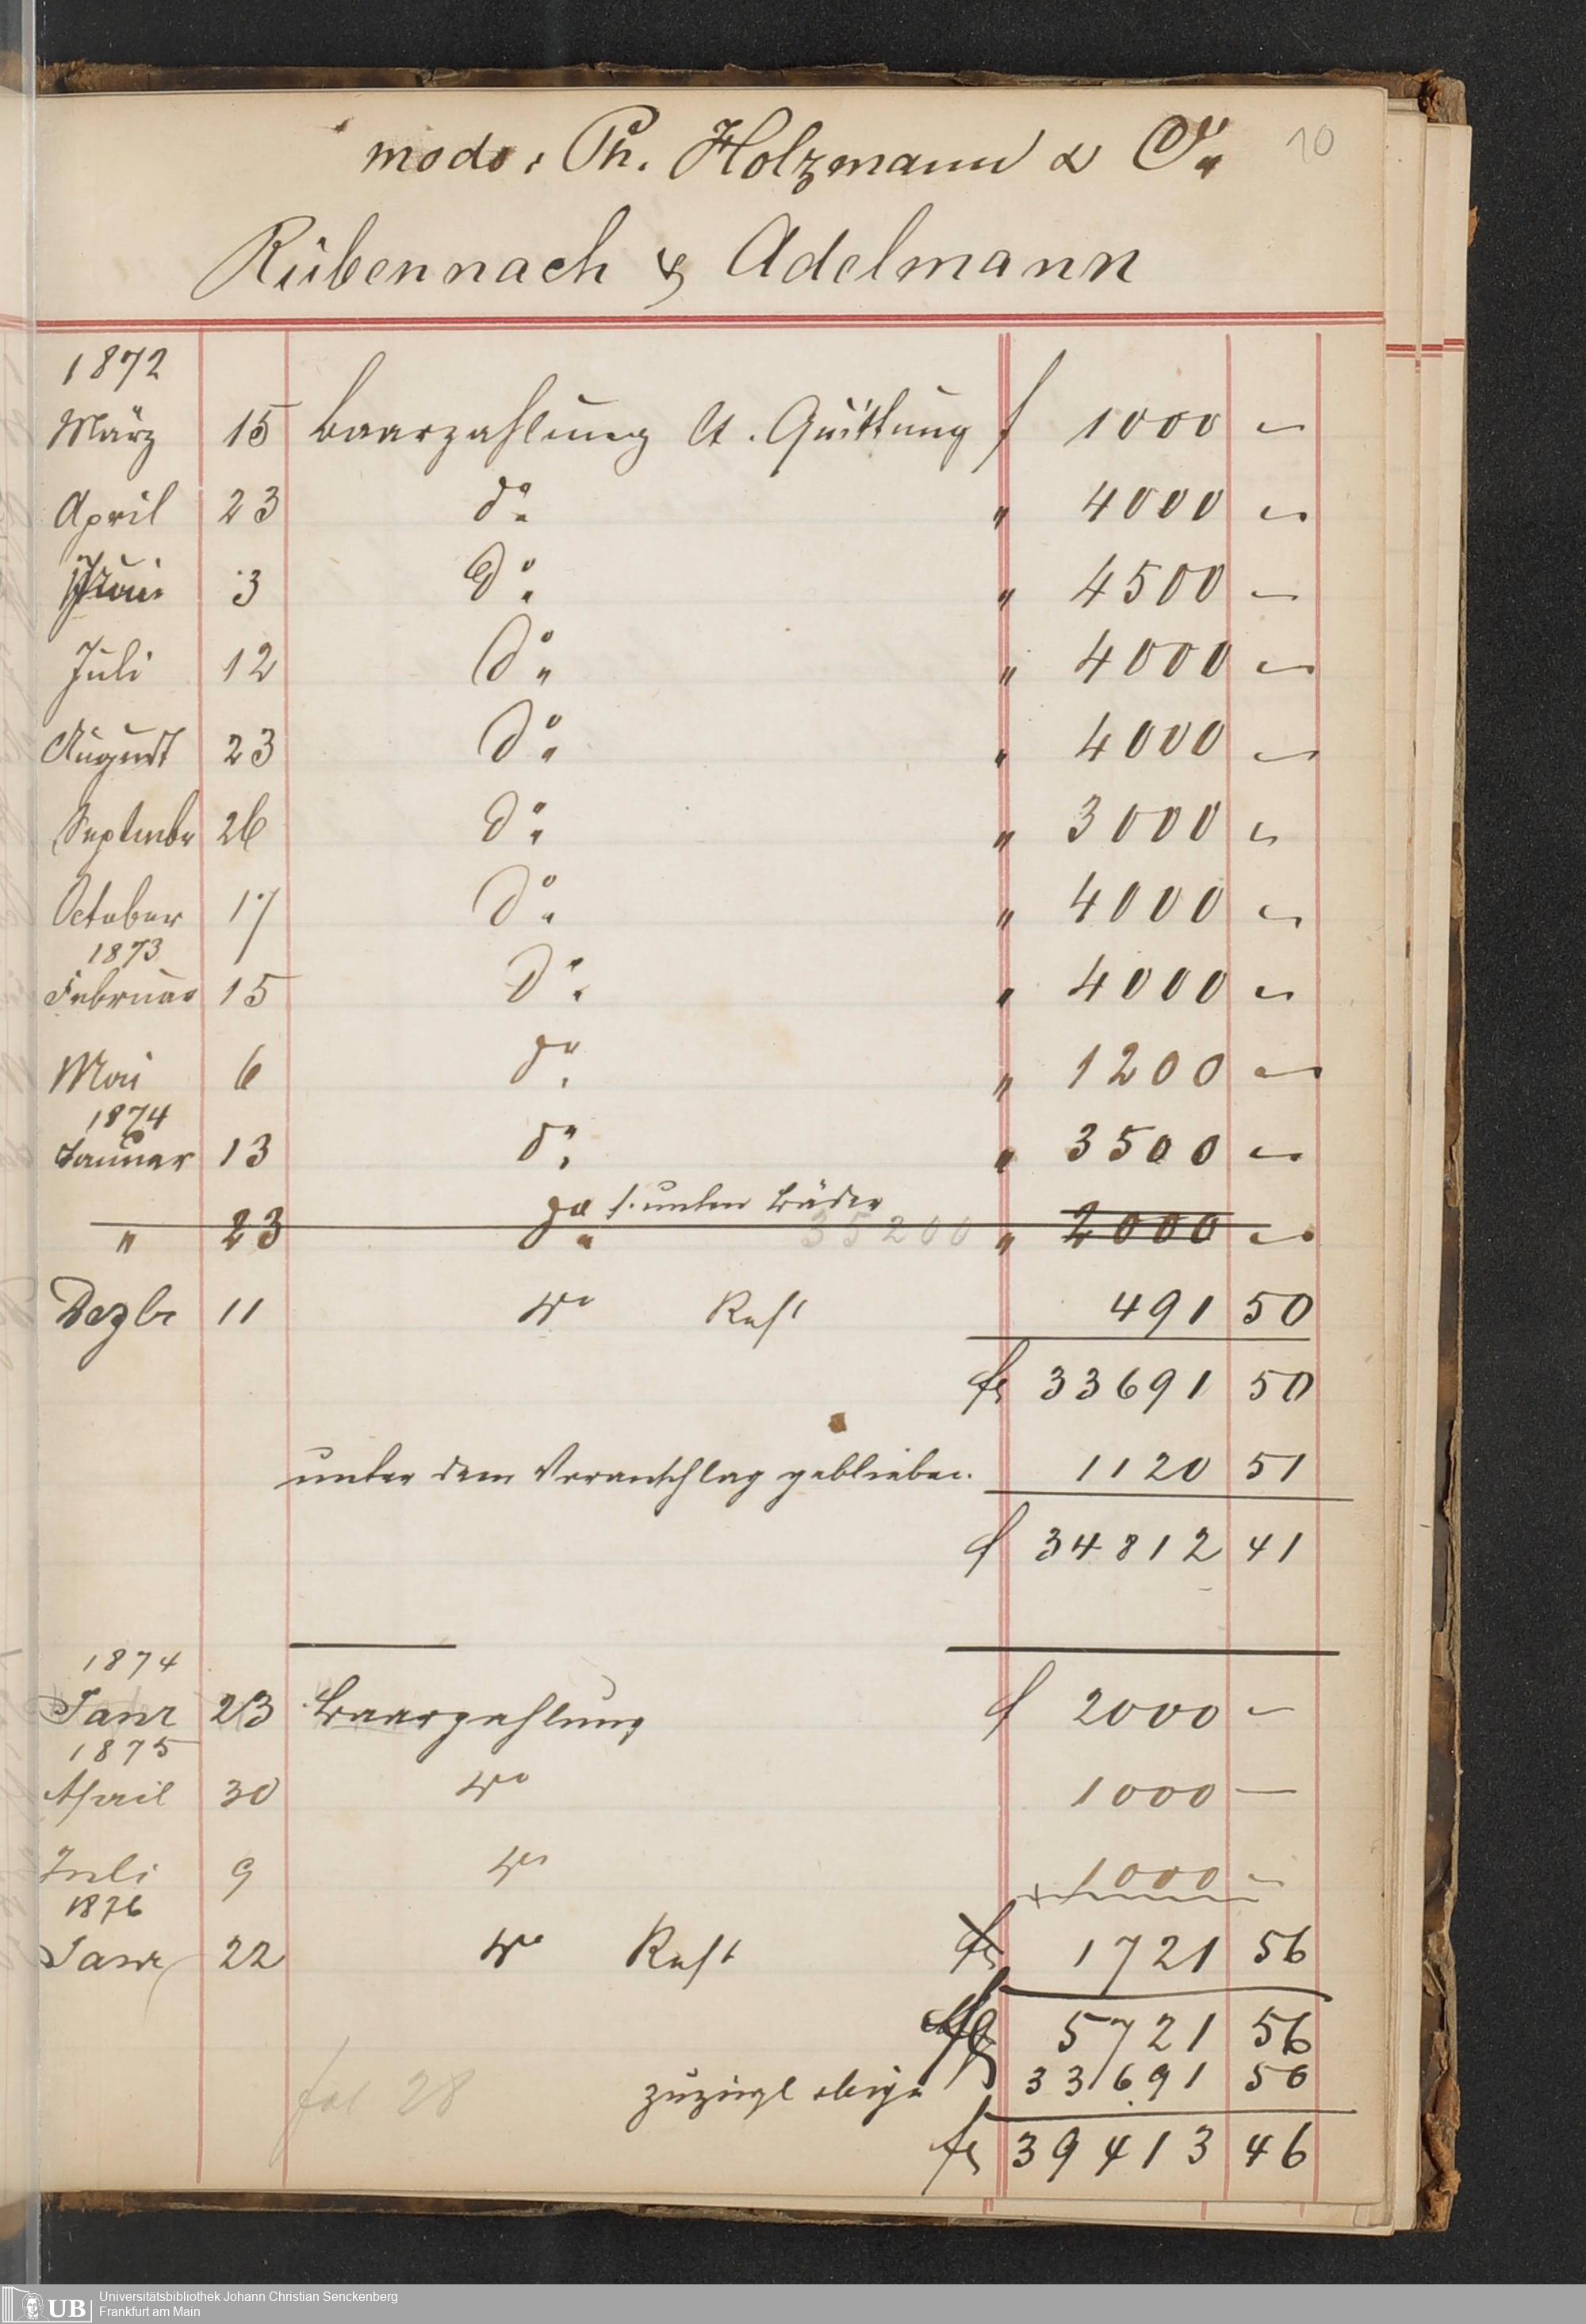 modo: Ph. Holzmann & Cie
10
Rübennach & Adelmann
1872
März 15 Baarzahlung lt. Quittung f 1000 —
April 23 do. " 4000 —
Juni 3 do. " 4500 —
Juli 12 do. " 4000 —
August 23 do. " 4000 —
September 26 do. " 3000 —
October 17 do. " 4000 —
1873
Februar 15 do. " 4000 —
Mai 6 do. " 1200 —
1874
Januar 13 do. " 3500 —
s. unten Bäder
" 23 do. 35200 " 2000 —
Dezbr 11 do Rest 491 50
fl 33691 50
unter dem Voranschlag geblieben. 1120 51
f 34812 41
1874
Janr 23 Baarzahlung f 2000 —
1875
April 30 do 1000 —
Juli 9 do 1000 —
1876
Janr 22 do Rest fl 1721 56
fl 5721 56
fol 28 zuzügl obige 33691 50
fl 39413 46
Universitätsbibliothek Johann Christian Senckenberg
UB Frankfurt am Main